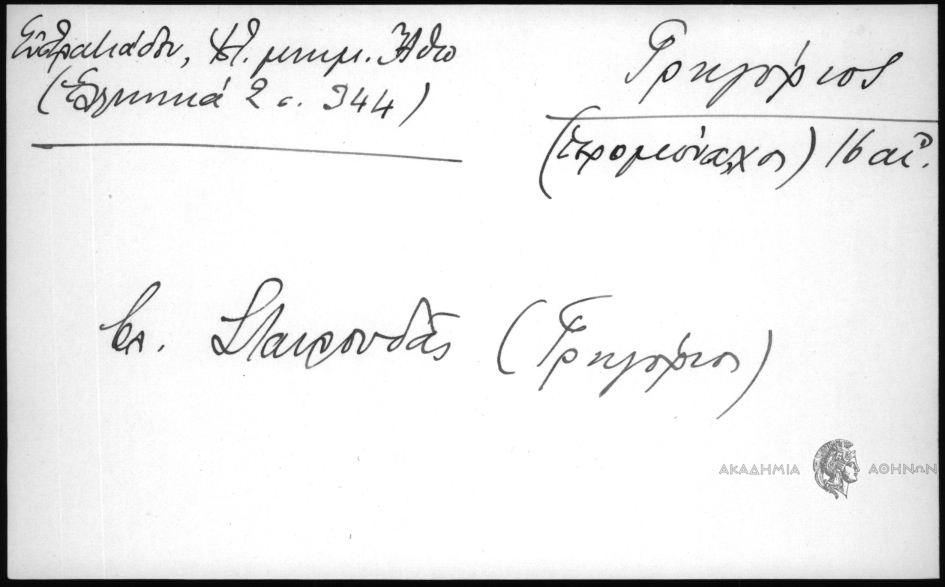 Εὐστρατιάδου, Ἁγ. μνημ. Ἄθω
(Ἑλληνικά 2 σ. 344)
Γρηγόριος
(ἱερομόναχος) 16 αἰ.
βλ. Σταυρουδᾶς (Γρηγόριος)
ΑΚΑΔΗΜΙΑ ΑΘΗΝΩΝ